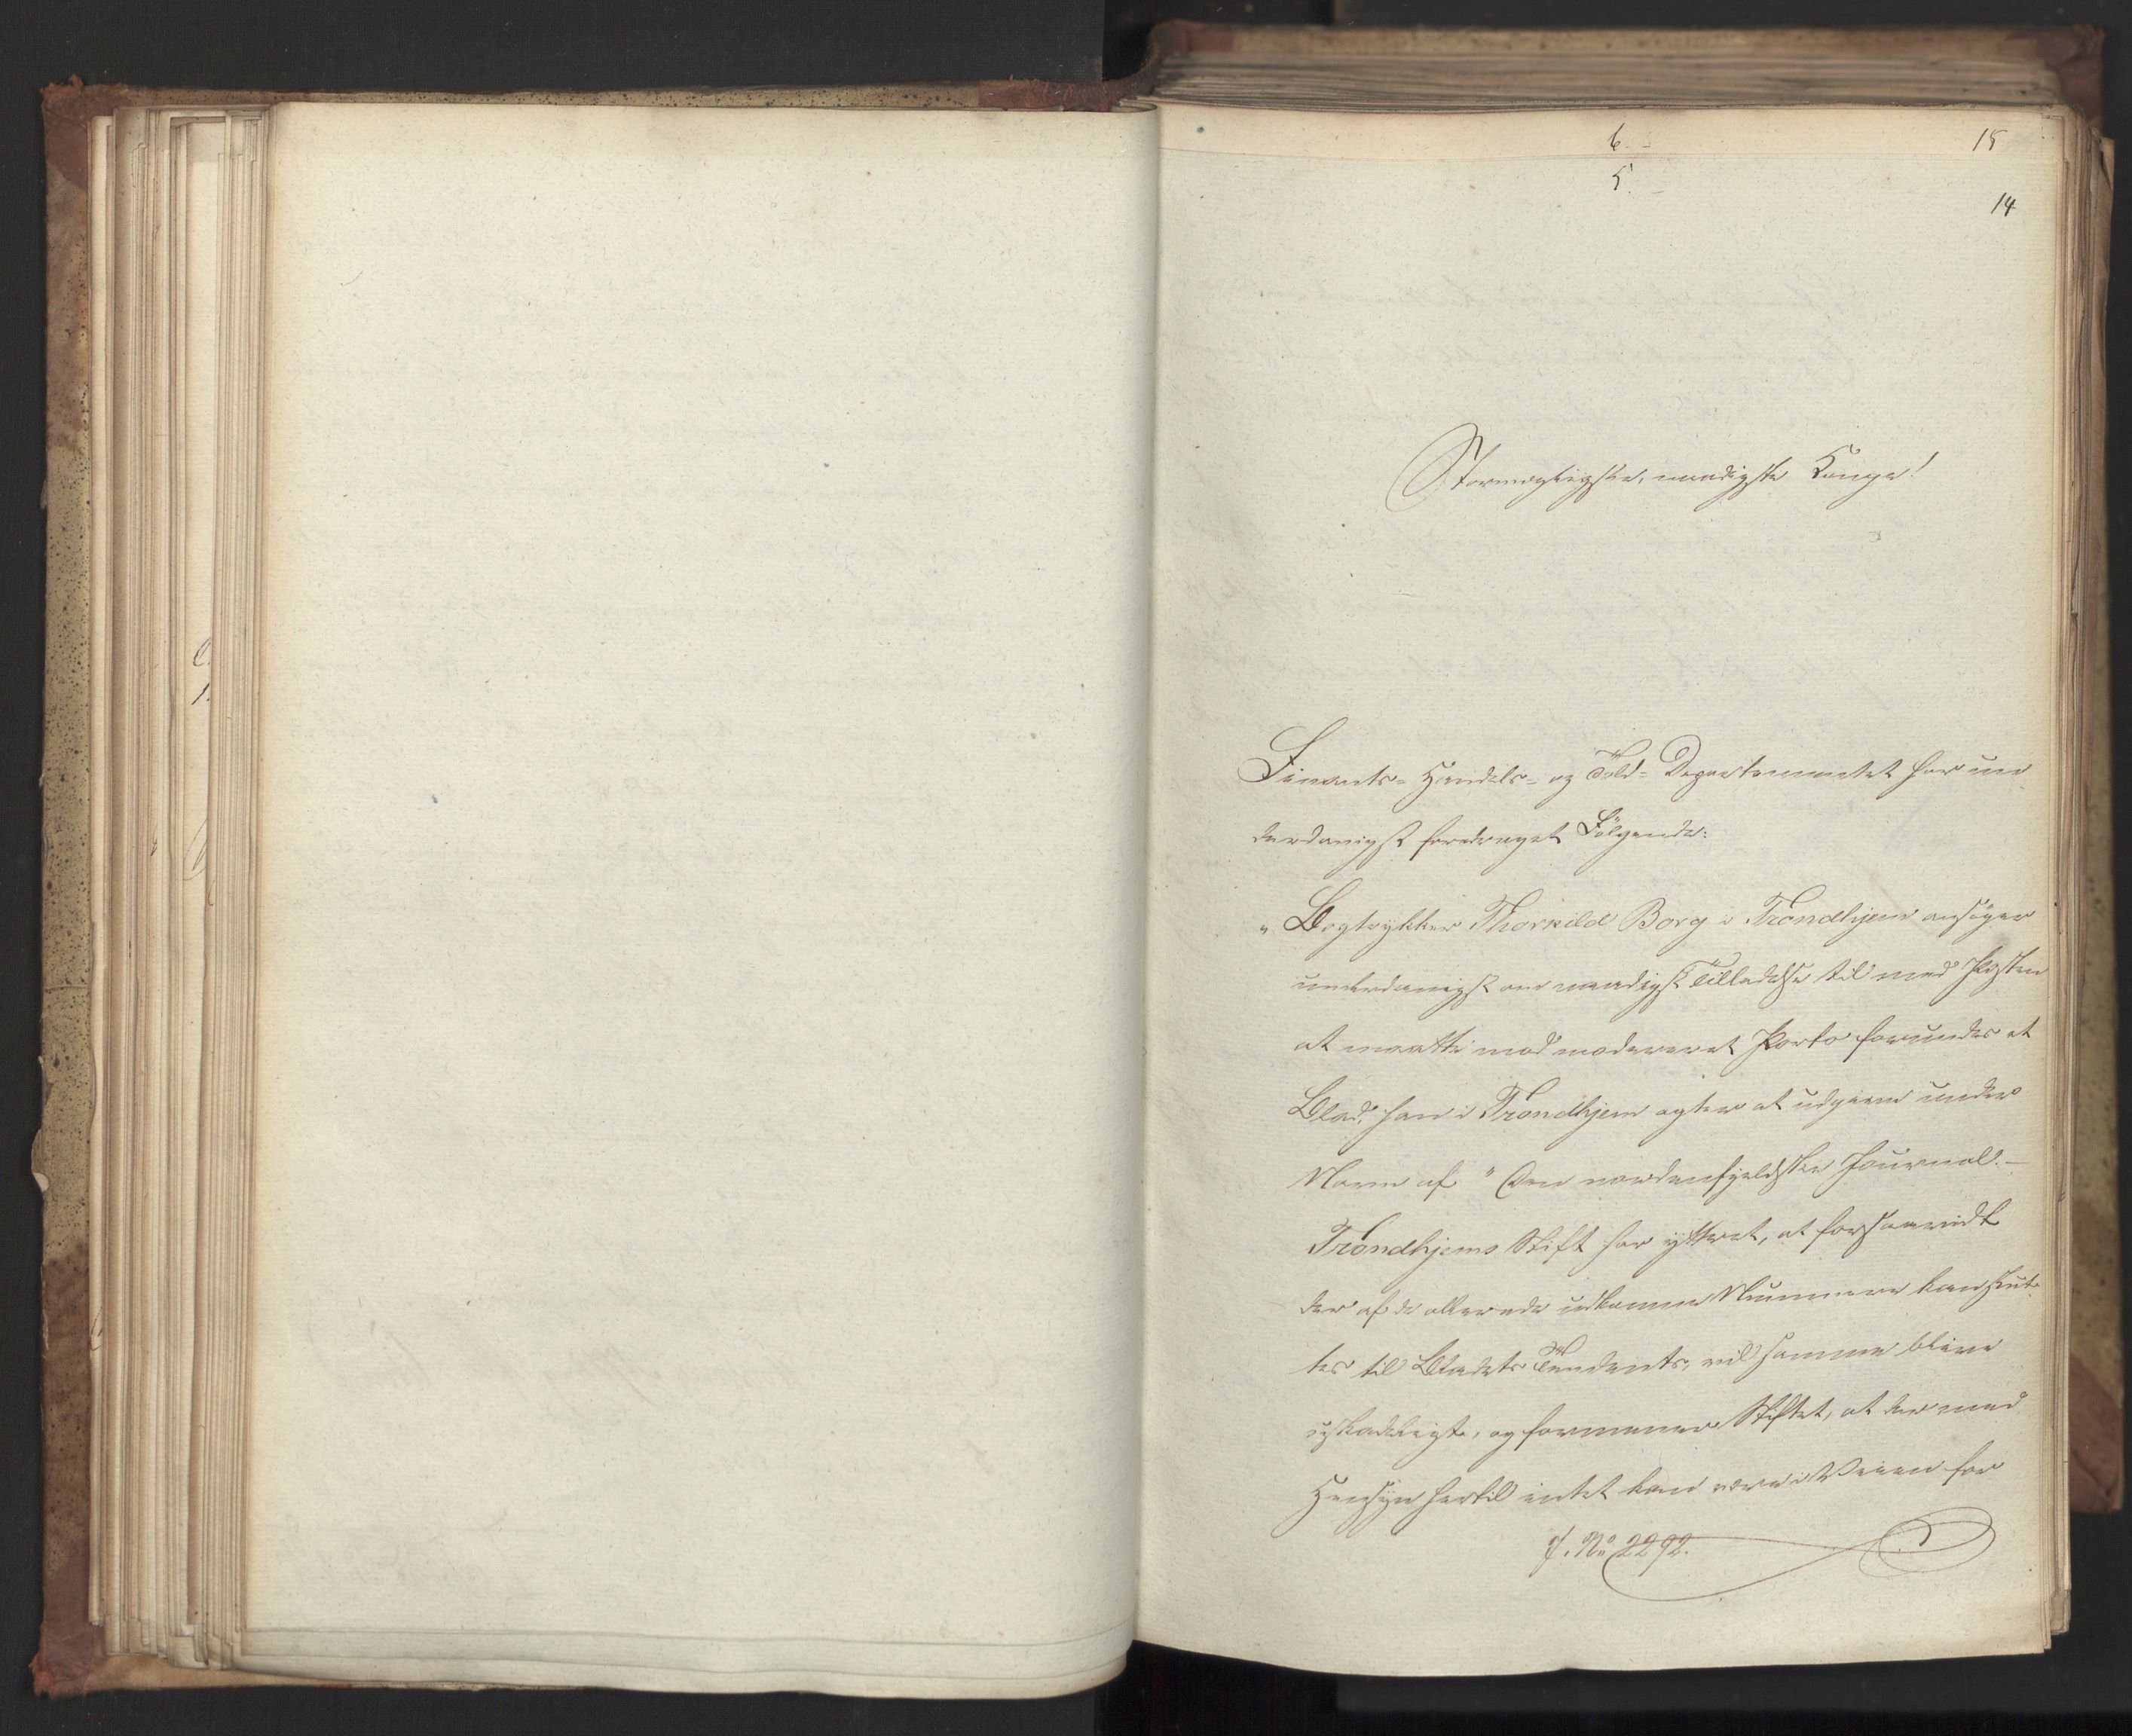 6.
15
5.
14
Stormægtigste, naadigste Konge!
Finants- Handels- og Told-Departementet har un-
derdanigst foredraget Følgende:
"Bogtrykker Thorkild Borg i Trondhjem ansøger
underdanigst om naadigst Tilladelse til med Posten
at maatte mod modereret Porto forsendes et
Blad, han i Trondhjem agter at udgive under
Navn af "Den nordenfjeldske Journal.—
Trondhjems Stift har yttret, at forsaavidt
der af de allerede udkomne Nummere kan slut-
tes til Bladets Tendents, vil samme blive
uskadeligt, og formener Stiftet, at der med
Hensyn hertil intet kan være i Veien for
J. No 2292.